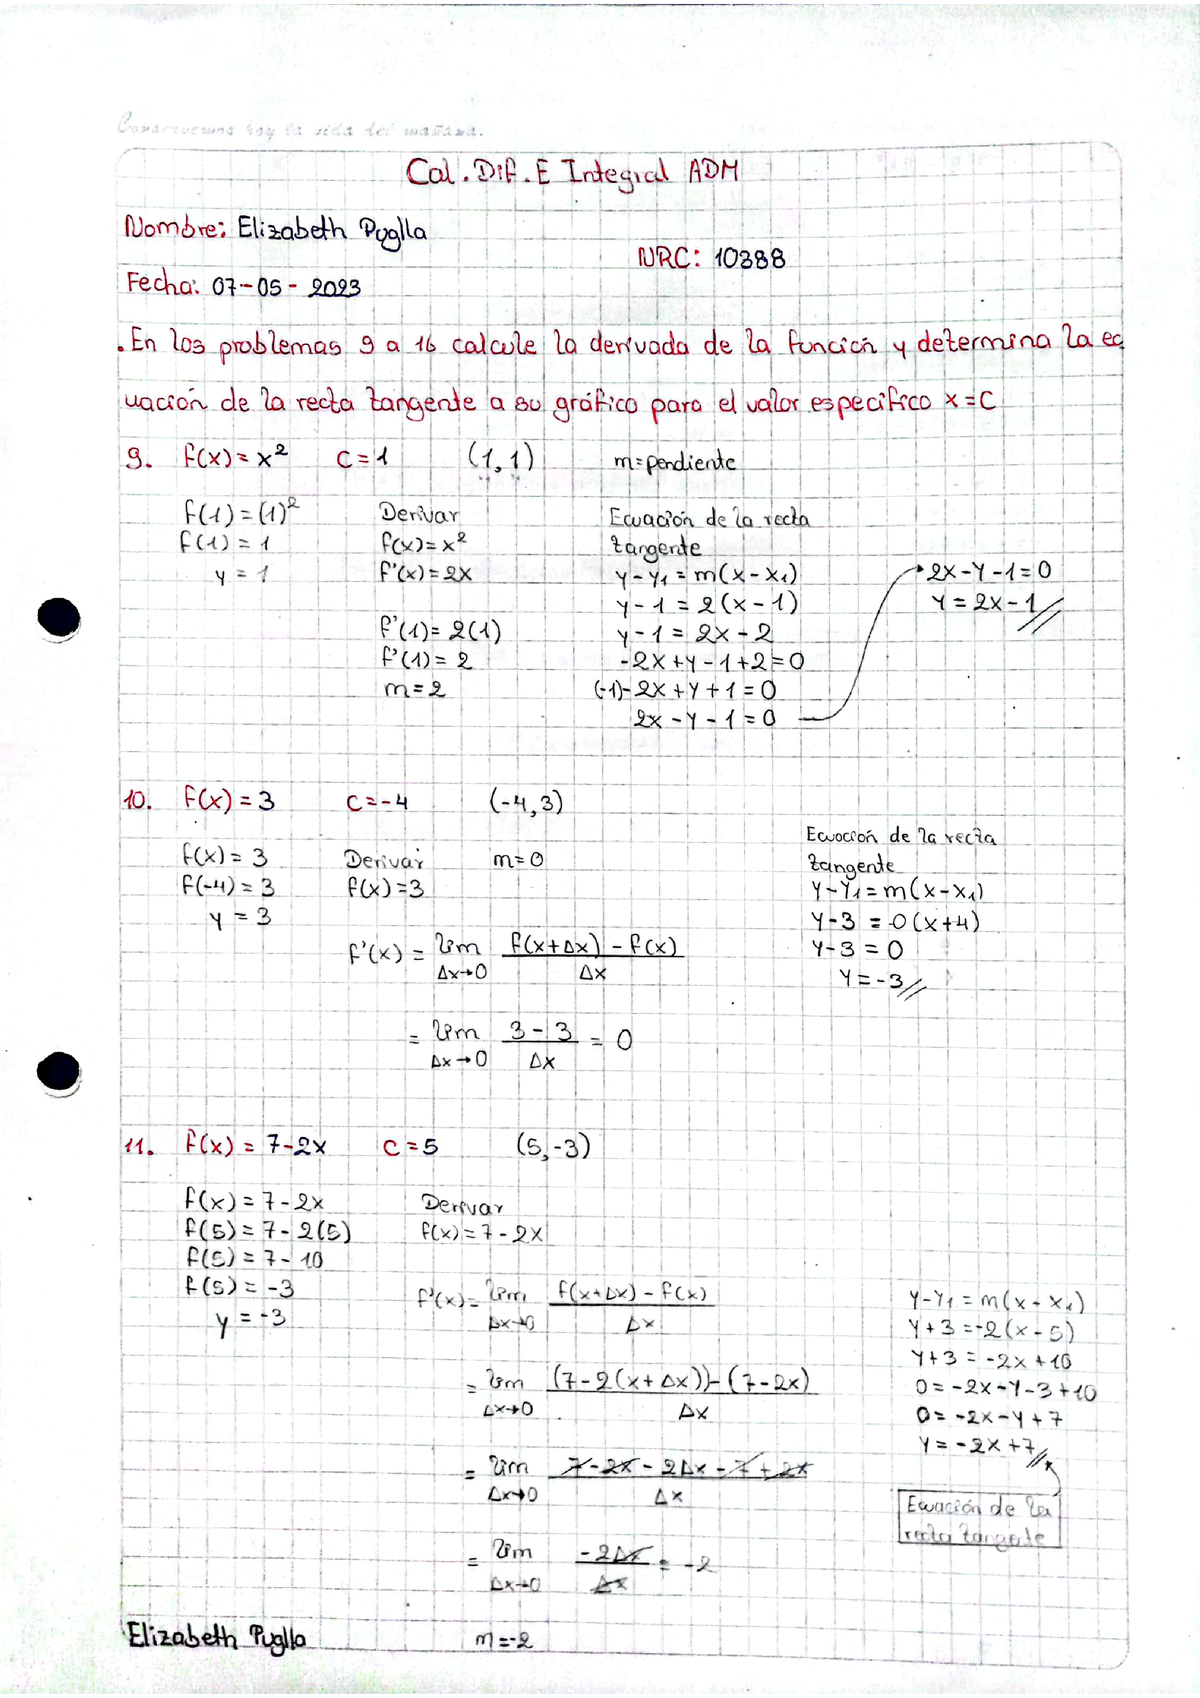 Conservemos hoy la vida del mañana.
Cal. Dif. E Integral ADM
Nombre: Elizabeth Puglla
NRC: 10388
Fecha: 07-05-2023
. En los problemas 9 a 16 calcule la derivada de la función y determina la ec
uación de la recta tangente a su gráfico para el valor especifico x=c
9. f(x)=x² C=1 (1,1) m=pendiente
f(1)=(1)²
f(1)=1
y=1
Derivar
f(x)=x²
f'(x)=2x
f'(1)=2(1)
f'(1)=2
m=2
Ecuación de la recta
tangente
y-y₁=m(x-x₁)
y-1=2(x-1)
y-1=2x-2
-2x+y-1+2=0
(-1)-2x+y+1=0
2x-y-1=0
2x-y-1=0
y=2x-1//
10. f(x)=3 C=-4 (-4,3)
f(x)=3
f(-4)=3
y=3
Derivar m=0
f(x)=3
f'(x) = lim f(x+Δx)-f(x)
Δx→0 Δx
= lim 3-3 = 0
Δx→0 Δx
Ecuación de la recta
tangente
y-y₁=m(x-x₁)
y-3=0(x+4)
y-3=0
y=-3//
11. f(x)=7-2x C=5 (5,-3)
f(x)=7-2x
f(5)=7-2(5)
f(5)=7-10
f(5)=-3
y=-3
Derivar
f(x)=7-2x
f'(x)= lim f(x+Δx)-f(x)
Δx→0 Δx
= lim (7-2(x+Δx))-(7-2x)
Δx→0 Δx
= lim 7-2x-2Δx-7+2x
Δx→0 Δx
= lim -2Δx = -2
Δx→0 Δx
m=-2
y-y₁=m(x-x₁)
y+3=-2(x-5)
y+3=-2x+10
0=-2x-y-3+10
0=-2x-y+7
y=-2x+7//
Ecuación de la
recta tangente
Elizabeth Puglla